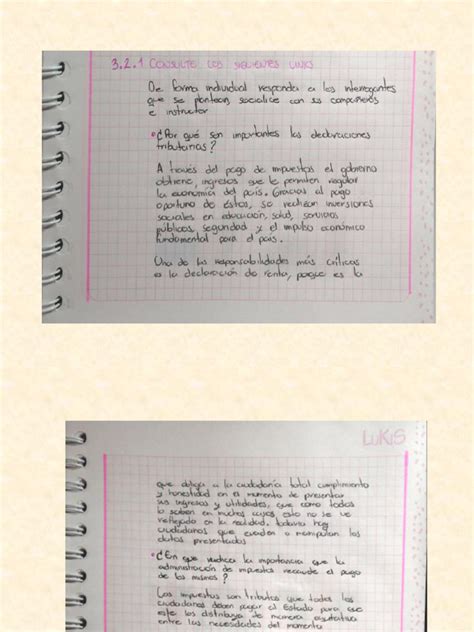 3.2.1 CONSULTE LOS SIGUIENTES LINKS
De forma individual responda a los interrogantes
que se plantean, socialice con sus compañeros
e instructor
• ¿Por qué son importantes las declaraciones
tributarias?
A través del pago de impuestos el gobierno
obtiene, ingresos que le permiten regular
la economía del país. Gracias al pago
oportuno de éstos, se realizan inversiones
sociales en educación, salud, servicios
públicos, seguridad y el impulso económico
fundamental para el país.
Una de las responsabilidades más críticas
es la declaración de renta, porque es la
LUKIS
que obliga a la ciudadanía total cumplimiento
y honestidad en el momento de presentar
sus ingresos y utilidades, que como todos
lo saben en muchos casos esto no se ve
reflejado en la realidad, todavía hay
ciudadanos que evaden o manipulan los
datos presentados.
• ¿En que radica la importancia que la
administración de impuestos recaude el pago
de los mismos?
Los impuestos son tributos que todos los
ciudadanos deben pagar al Estado para que
este los distribuya de manera equitativa
entre las necesidades del momento